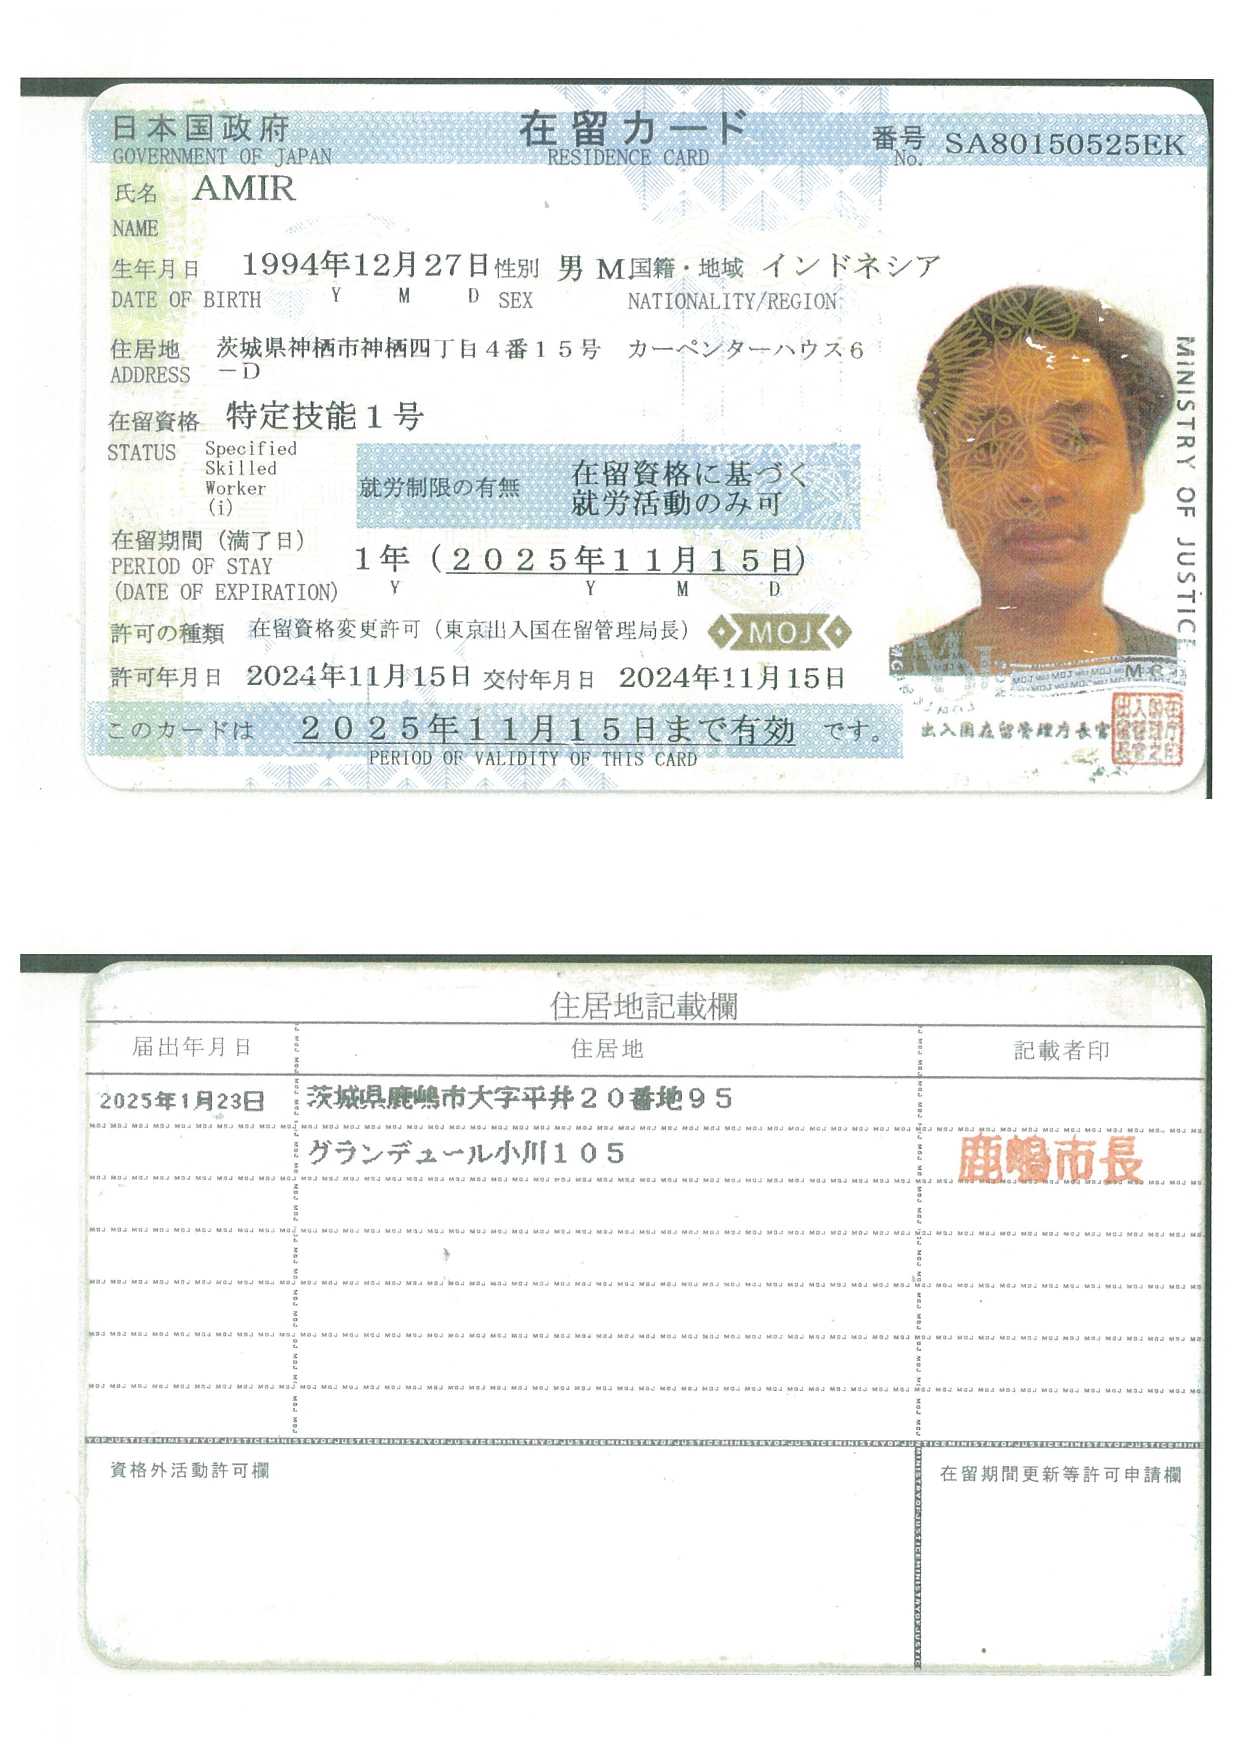 日本国政府 在留カード 番号 SA80150525EK
GOVERNMENT OF JAPAN RESIDENCE CARD No.
氏名 AMIR
NAME
生年月日 1994年12月27日 性別 男 M. 国籍・地域 インドネシア
DATE OF BIRTH Y M D SEX NATIONALITY/REGION
住居地 茨城県神栖市神栖四丁目4番15号 カーペンターハウス6
ADDRESS －D
在留資格 特定技能1号
STATUS Specified
Skilled
Worker
(i)
就労制限の有無 在留資格に基づく
就労活動のみ可
在留期間（満了日）
PERIOD OF STAY 1年（2025年11月15日）
(DATE OF EXPIRATION) Y Y M D
許可の種類 在留資格変更許可（東京出入国在留管理局長） MOJ
許可年月日 2024年11月15日 交付年月日 2024年11月15日
このカードは 2025年11月15日まで有効 です。
PERIOD OF VALIDITY OF THIS CARD
MINISTRY OF JUSTICE
出入国在留管理庁長官
住居地記載欄
届出年月日 住居地 記載者印
2025年1月23日 茨城県鹿嶋市大字平井20番地95
グランデュール小川105 鹿嶋市長
資格外活動許可欄 在留期間更新等許可申請欄